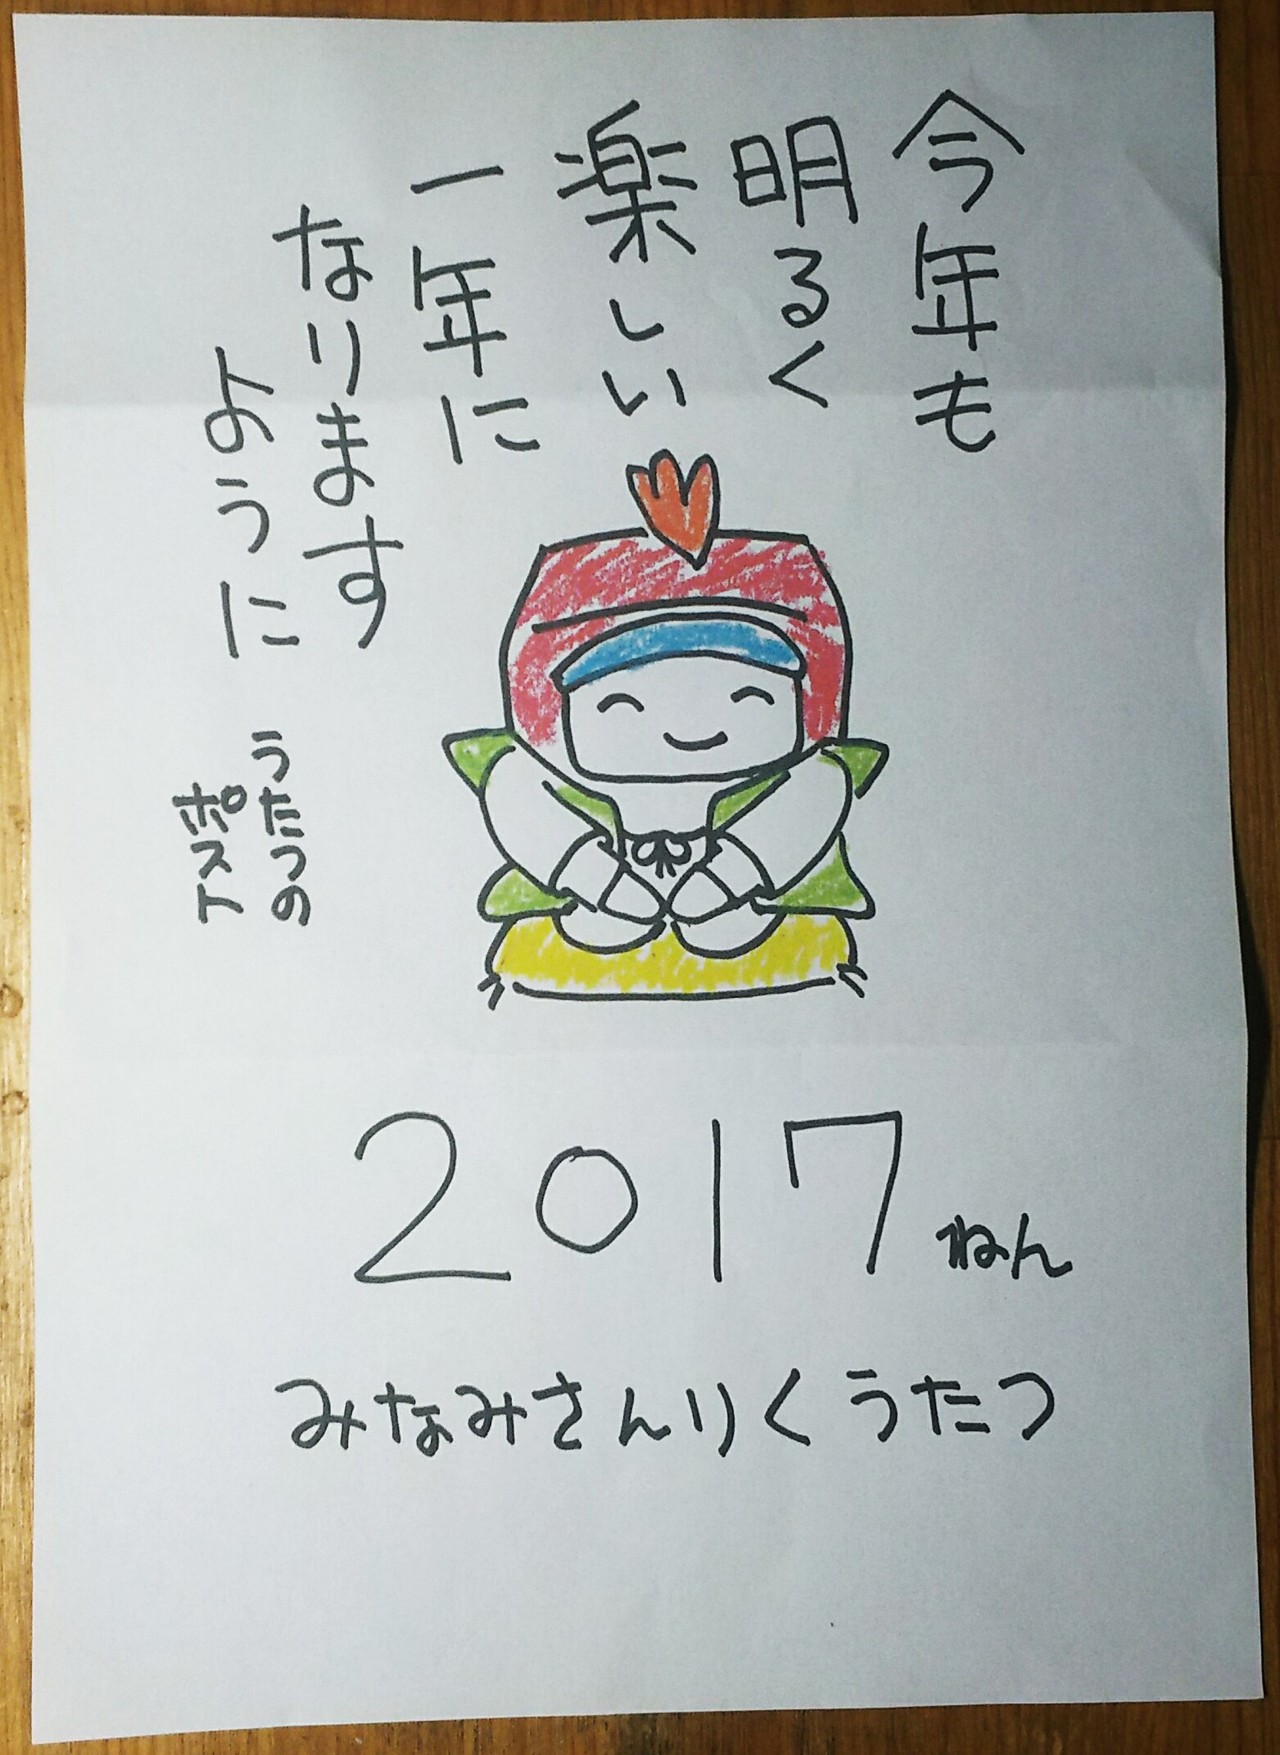 今年も
明るく
楽しい
一年に
なります
ように
うたつの
ポスト
2017ねん
みなみさんりくうたつ